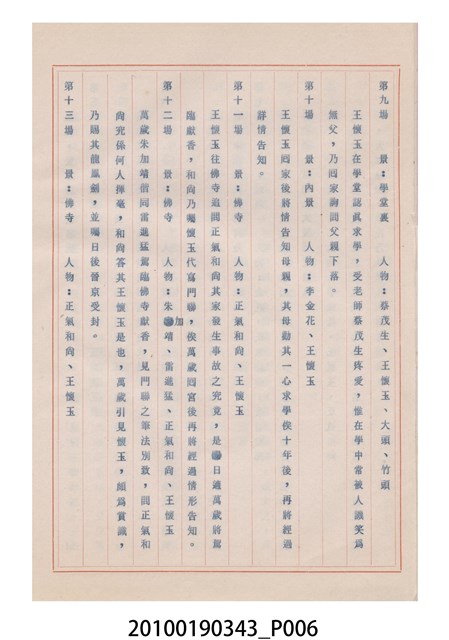 第九場　景：學堂裏　人物：蔡茂生、王懷玉、大頭、竹頭
王懷玉在學堂認眞求學，受老師蔡茂生疼愛，惟在學中常被人譏笑爲
無父，乃囘家詢問父親下落。
第十場　景：內景　人物：李金花、王懷玉
王懷玉囘家後將情告知母親，其母勸其一心求學俟十年後，再將經過
詳情告知。
第十一場　景：佛寺　人物：正氣和尙、王懷玉
王懷玉往佛寺追問正氣和尙其家發生事故之究竟，是日適萬歲將駕
臨獻香，和尙乃囑懷玉代寫門聯，俟萬歲囘宮後再將經過情形告知。
第十二場　景：佛寺　人物：朱加靖、雷進猛、正氣和尙、王懷玉
萬歲朱加靖偕同雷進猛駕臨佛寺獻香，見門聯之筆法別致，問正氣和
尙究係何人揮毫，和尙答其王懷玉是也，萬歲引見懷玉，頗爲賞識，
乃賜其龍鳳劍，並囑日後晉京受封。
第十三場　景：佛寺　人物：正氣和尙、王懷玉
20100190343_P006